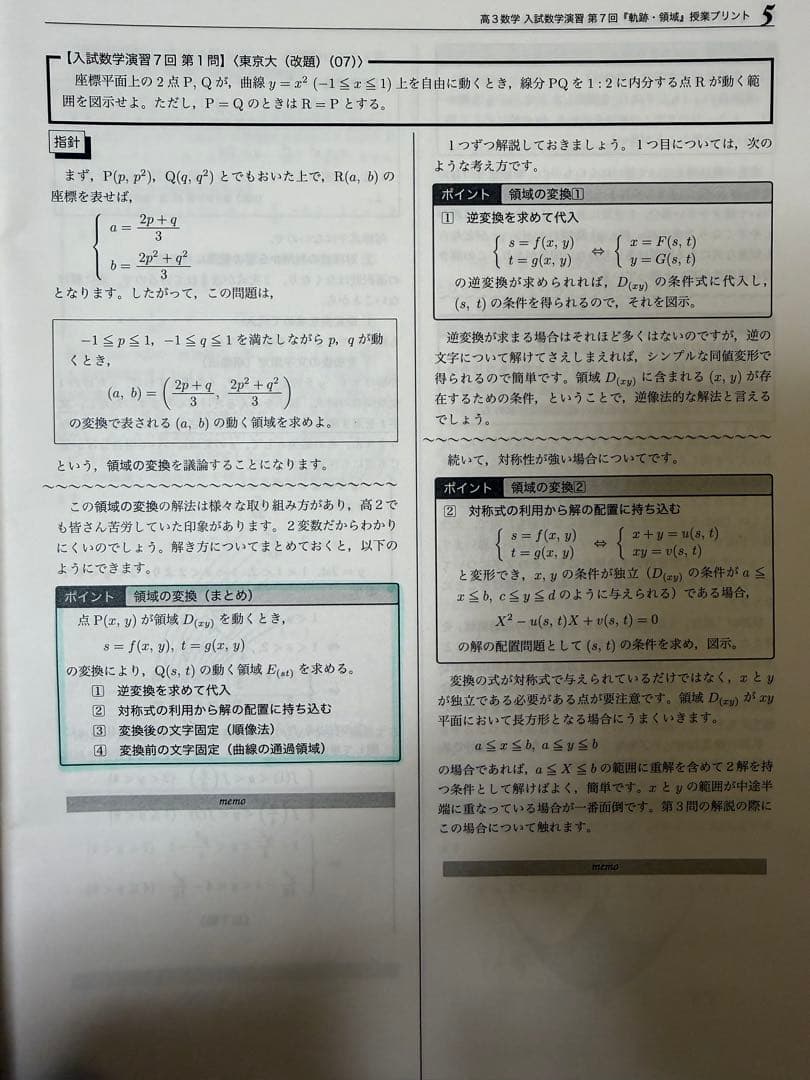 高3数学 入試数学演習 第7回『軌跡・領域』授業プリント 5
【入試数学演習7回 第1問】〈東京大（改題）（07）〉
座標平面上の2点P, Qが，曲線 y = x² (−1≦x≦1) 上を自由に動くとき，線分PQを1：2に内分する点Rが動く範
囲を図示せよ。ただし，P＝QのときはR＝Pとする。
指針
まず，P(p, p²)，Q(q, q²) とでもおいた上で，R(a, b) の
座標を表せば，
a = (2p + q)/3
b = (2p² + q²)/3
となります。したがって，この問題は，
−1≦p≦1, −1≦q≦1 を満たしながら p, q が動
くとき，
(a, b) = ((2p + q)/3, (2p² + q²)/3)
の変換で表される (a, b) の動く領域を求めよ。
という，領域の変換を議論することになります。
この領域の変換の解法は様々な取り組み方があり，高2で
も皆さん苦労していた印象があります。2変数だからわかり
にくいのでしょう。解き方についてまとめておくと，以下の
ようにできます。
ポイント 領域の変換（まとめ）
点 P(x, y) が領域 D(xy) を動くとき，
s = f(x, y), t = g(x, y)
の変換により，Q(s, t) の動く領域 E(st) を求める。
1 逆変換を求めて代入
2 対称式の利用から解の配置に持ち込む
3 変換後の文字固定（順像法）
4 変換前の文字固定（曲線の通過領域）
memo
1つずつ解説しておきましょう。1つ目については，次の
ような考え方です。
ポイント 領域の変換①
1 逆変換を求めて代入
{ s = f(x, y) ⇔ { x = F(s, t)
t = g(x, y) y = G(s, t)
の逆変換が求められれば，D(xy) の条件式に代入し，
(s, t) の条件を得られるので，それを図示。
逆変換が求まる場合はそれほど多くはないのですが，逆の
文字について解けてさえしまえれば，シンプルな同値変形で
得られるので簡単です。領域 D(xy) に含まれる (x, y) が存
在するための条件，ということで，逆像法的な解法と言える
でしょう。
続いて，対称性が強い場合についてです。
ポイント 領域の変換②
2 対称式の利用から解の配置に持ち込む
{ s = f(x, y) ⇔ { x + y = u(s, t)
t = g(x, y) xy = v(s, t)
と変形でき，x, y の条件が独立（D(xy) の条件が a≦
x≦b, c≦y≦d のように与えられる）である場合，
X² − u(s, t)X + v(s, t) = 0
の解の配置問題として (s, t) の条件を求め，図示。
変換の式が対称式で与えられているだけではなく，x と y
が独立である必要がある点が要注意です。領域 D(xy) が xy
平面において長方形となる場合にうまくいきます。
a≦x≦b, a≦y≦b
の場合であれば，a≦X≦b の範囲に重解を含めて2解を持
つ条件として解けばよく，簡単です。x と y の範囲が中途半
端に重なっている場合が一番面倒です。第3問の解説の際に
この場合について触れます。
memo